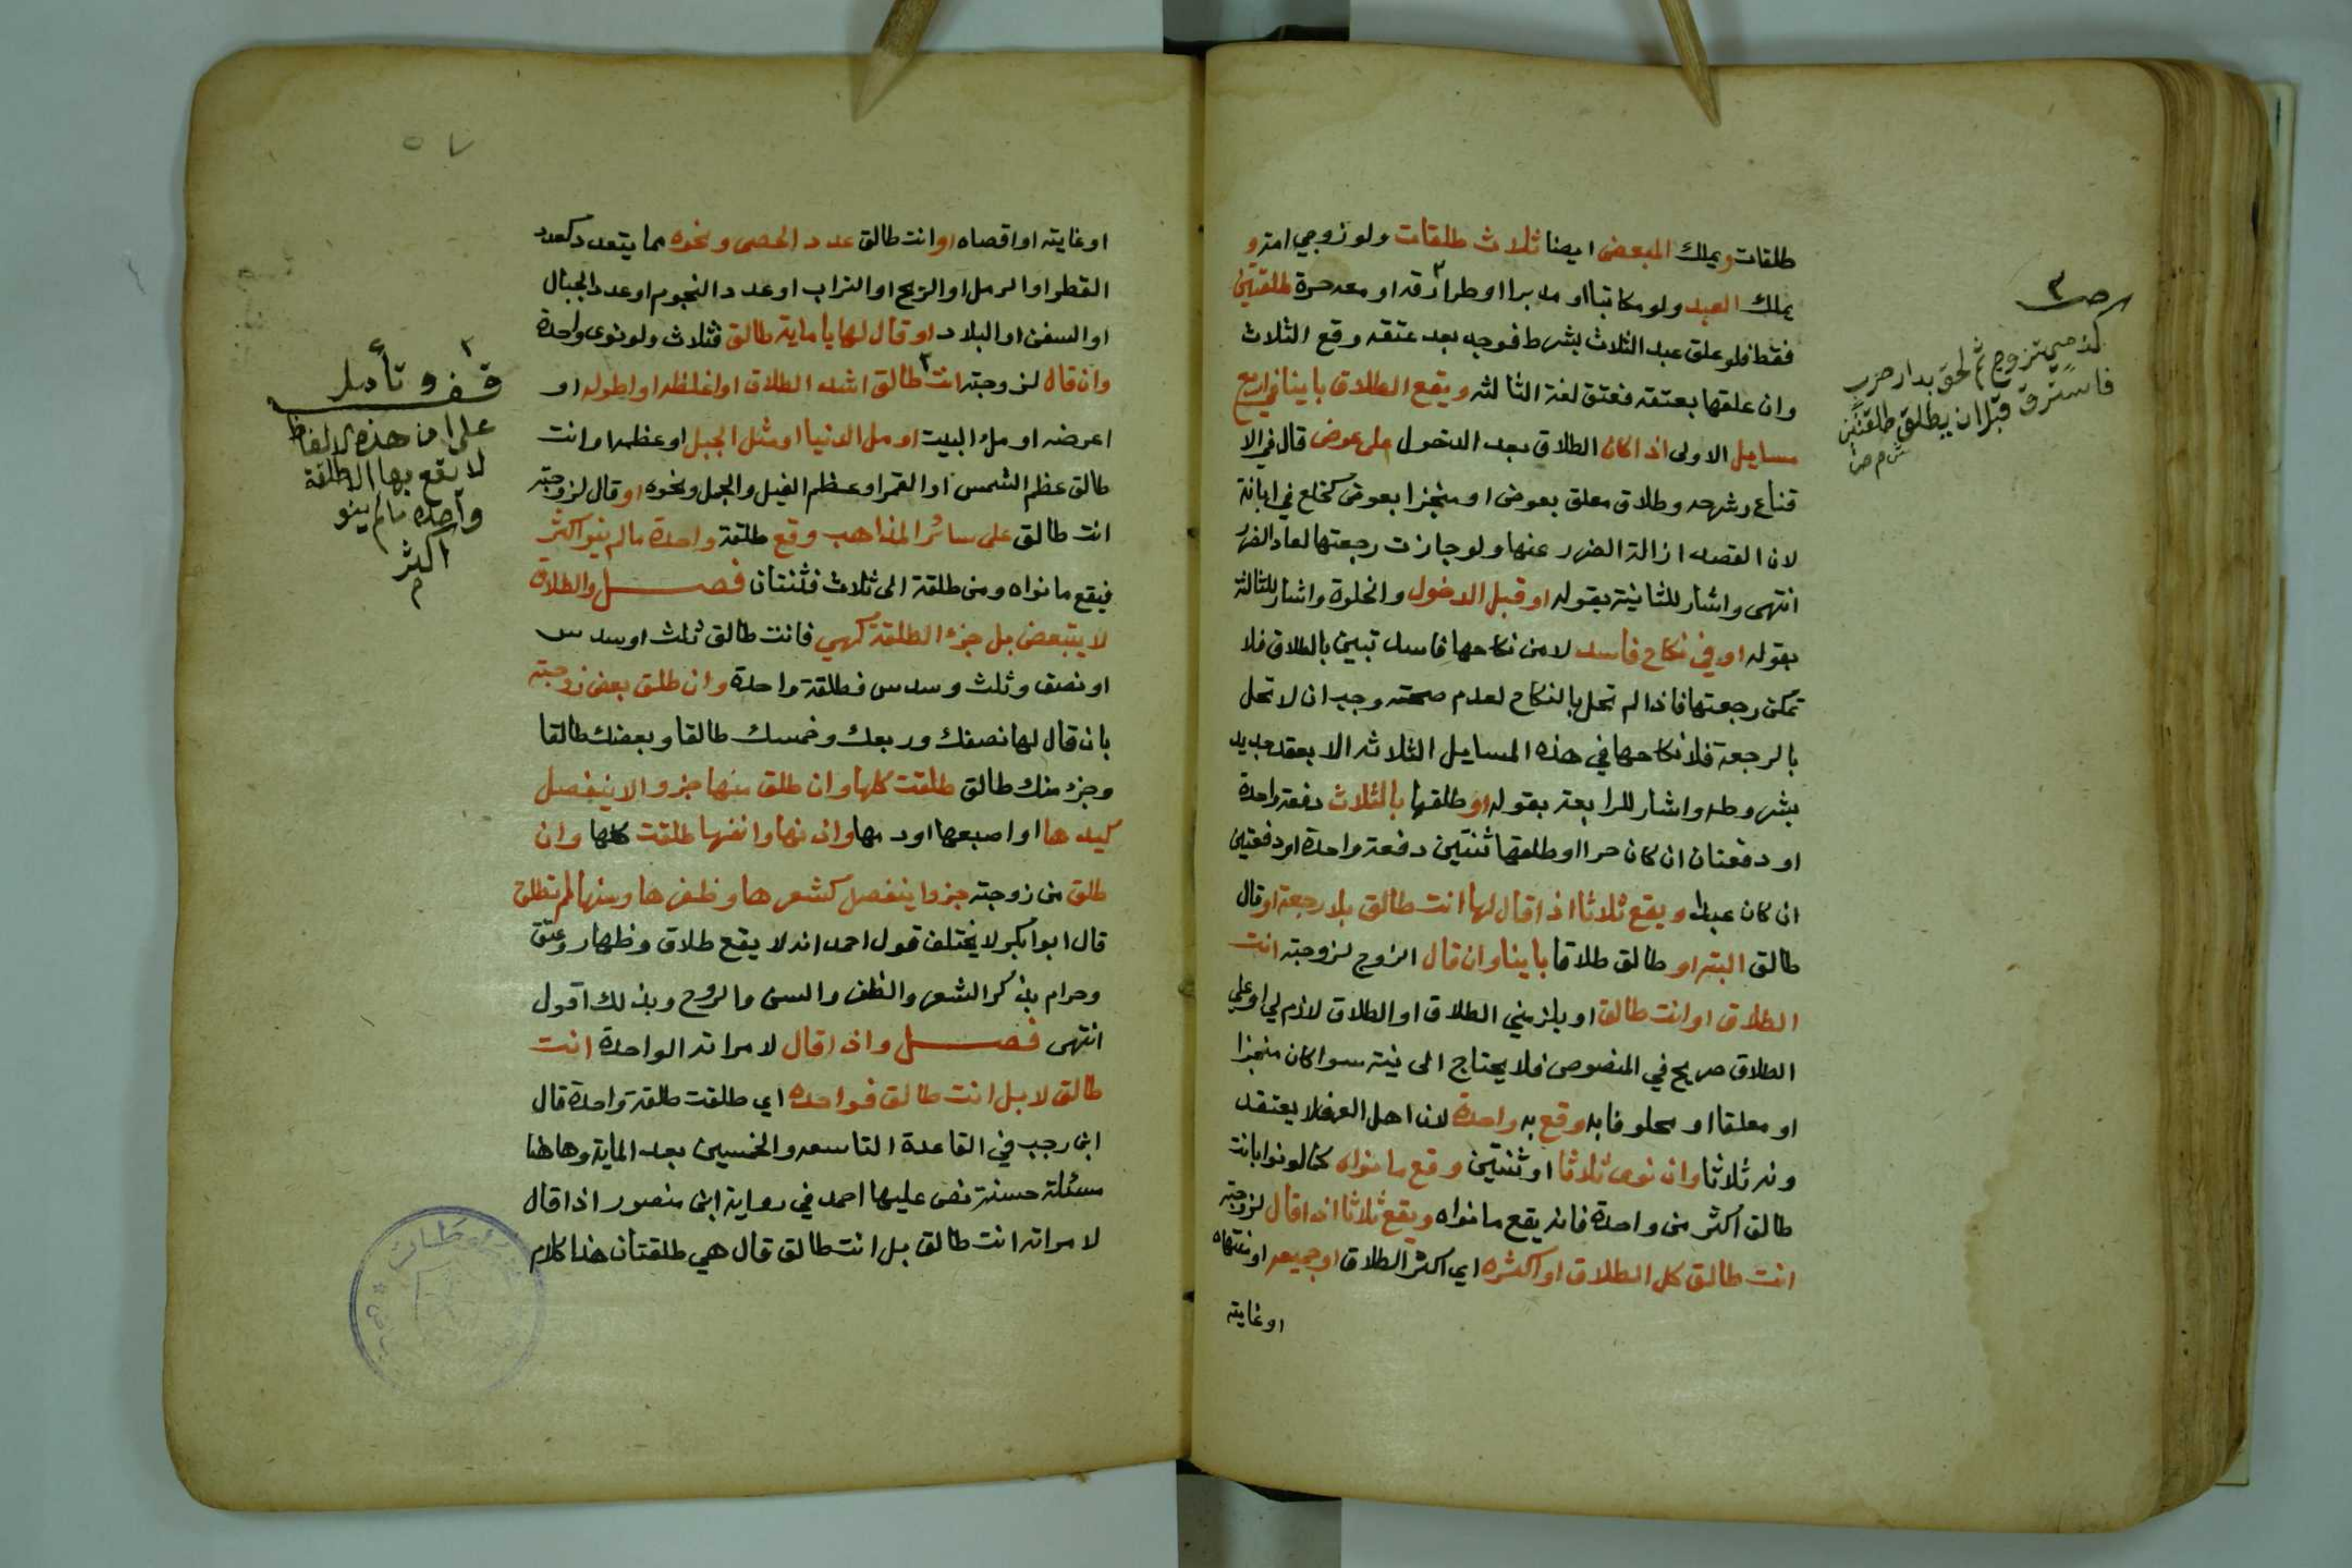 طلقات ويملك المبعض ايضا ثلاث طلقات ولو زوجي امة و
يملك العبد ولو مكاتبا او مدبرا او طرا رقه او معه حرة طلقتين
فقط فلو علق عبد الثلاث بشرط فوجد بعد عتقه وقع الثلاث
وان علقها بعتقه فعتق لغة الثالثه ويقع الطلاق باينا في اربع
مسايل الاولى اذا كان الطلاق بعد الدخول على عوض قال في الا
قناع وشرحه وطلاق معلق بعوض او منجزا بعوض كخلع في ابانة
لان القصد ازالة الضرر عنها ولو جازت رجعتها لعاد الضرر
انتهى واشار للثانية بقوله او قبل الدخول والخلوة واشار للثالثة
بقوله او في نكاح فاسد لا من نكاحها فاسد تبين بالطلاق فلا
تمكن رجعتها فاذا لم تحل بالنكاح لعدم صحته وجب ان لا تحل
بالرجعة فلا نكاحها في هذه المسايل الثلاثه الا بعقد جديد
بشروطه واشار للرابعة بقوله او طلقها بالثلاث دفعة واحدة
او دفعتان ان كان حرا او طلقها ثنتين دفعة واحدة او دفعتين
ان كان عبدا ويقع ثلاثا اذا قال لها انت طالق بلا رجعة او قال
طالق البته او طالق طلاقا باينا وان قال الزوج لزوجته انت
الطلاق او انت طالق او يلزمني الطلاق او الطلاق لازم لي او علي
الطلاق صريح في المنصوص فلا يحتاج الى نية سوا كان منجزا
او معلقا او محلوفا به وقع به واحدة لان اهل العرف لا يعتقد
ونه ثلاثا وان نوى ثلاثا او ثنتين وقع ما نواه كما لو نوا بانت
طالق اكثر من واحدة فانه يقع ما نواه ويقع ثلاثا اذا قال لزوجته
انت طالق كل الطلاق او اكثره اي اكثر الطلاق او جميعه او منتهاه
او غايته
صح
كذمي تزوج ثم لحق بدار حرب
فاسترق قبل ان يطلق طلقتين
ش م ص
٥٧
او غايته او اقصاه او انت طالق عدد الحصى ونحوه مما يتعدد كعدد
القطر او الرمل او الريح او التراب او عدد النجوم او عدد الجبال
او السفن او البلاد او قال لها يا ماية طالق فثلاث ولو نوى واحدة
وان قال لزوجته انت طالق اشد الطلاق او اغلظه او اطوله او
اعرضه او مل البيت او مل الدنيا او مثل الجبل او عظمه او انت
طالق عظم الشمس او القمر او عظم الفيل والجمل ونحوه او قال لزوجته
انت طالق على سائر المذاهب وقع طلقة واحدة ما لم ينو اكثر
فيقع ما نواه ومن طلقة الى ثلاث فثنتان فصل والطلاق
لا يتبعض بل جزء الطلقة كهي فانت طالق ثلث او سدس
او نصف وثلث وسدس فطلقة واحدة وان طلق بعض زوجته
بان قال لها نصفك وربعك وخمسك طالقا وبعضك طالقا
وجزء منك طالق طلقت كلها وان طلق منها جزوا لا ينفصل
كيدها او اصبعها او دمها واذنها وانفها طلقت كلها وان
طلق من زوجته جزوا ينفصل كشعرها وظفرها وسنها لم تطلق
قال ابو بكر لا يختلف قول احمد انه لا يقع طلاق وظهار وعتق
وحرام بذكر الشعر والظفر والسن والروح وبذلك اقول
انتهى فصل واذا قال لامراته الواحدة انت
طالق لا بل انت طالق فواحده اي طلقت طلقة واحدة قال
ابن رجب في القاعدة التاسعه والخمسين بعد الماية وهاهنا
مسئلة حسنة نص عليها احمد في رواية ابن منصور اذا قال
لامراته انت طالق بل انت طالق قال هي طلقتان هذا كلام
قف وتأمل
على ان هذه الالفاظ
لا يقع بها الا طلقة
واحده ما لم ينو
اكثر